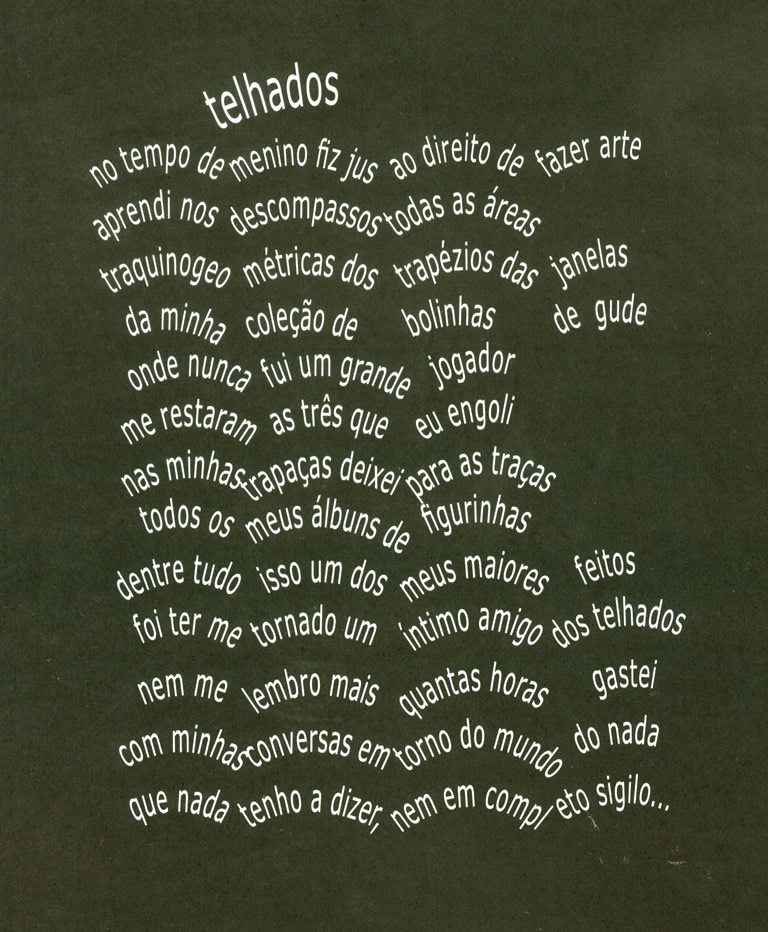 telhados
no tempo de menino fiz jus ao direito de fazer arte
aprendi nos descompassos todas as áreas
traquinogeo métricas dos trapézios das janelas
da minha coleção de bolinhas de gude
onde nunca fui um grande jogador
me restaram as três que eu engoli
nas minhas trapaças deixei para as traças
todos os meus álbuns de figurinhas
dentre tudo isso um dos meus maiores feitos
foi ter me tornado um íntimo amigo dos telhados
nem me lembro mais quantas horas gastei
com minhas conversas em torno do mundo do nada
que nada tenho a dizer, nem em compl eto sigilo...